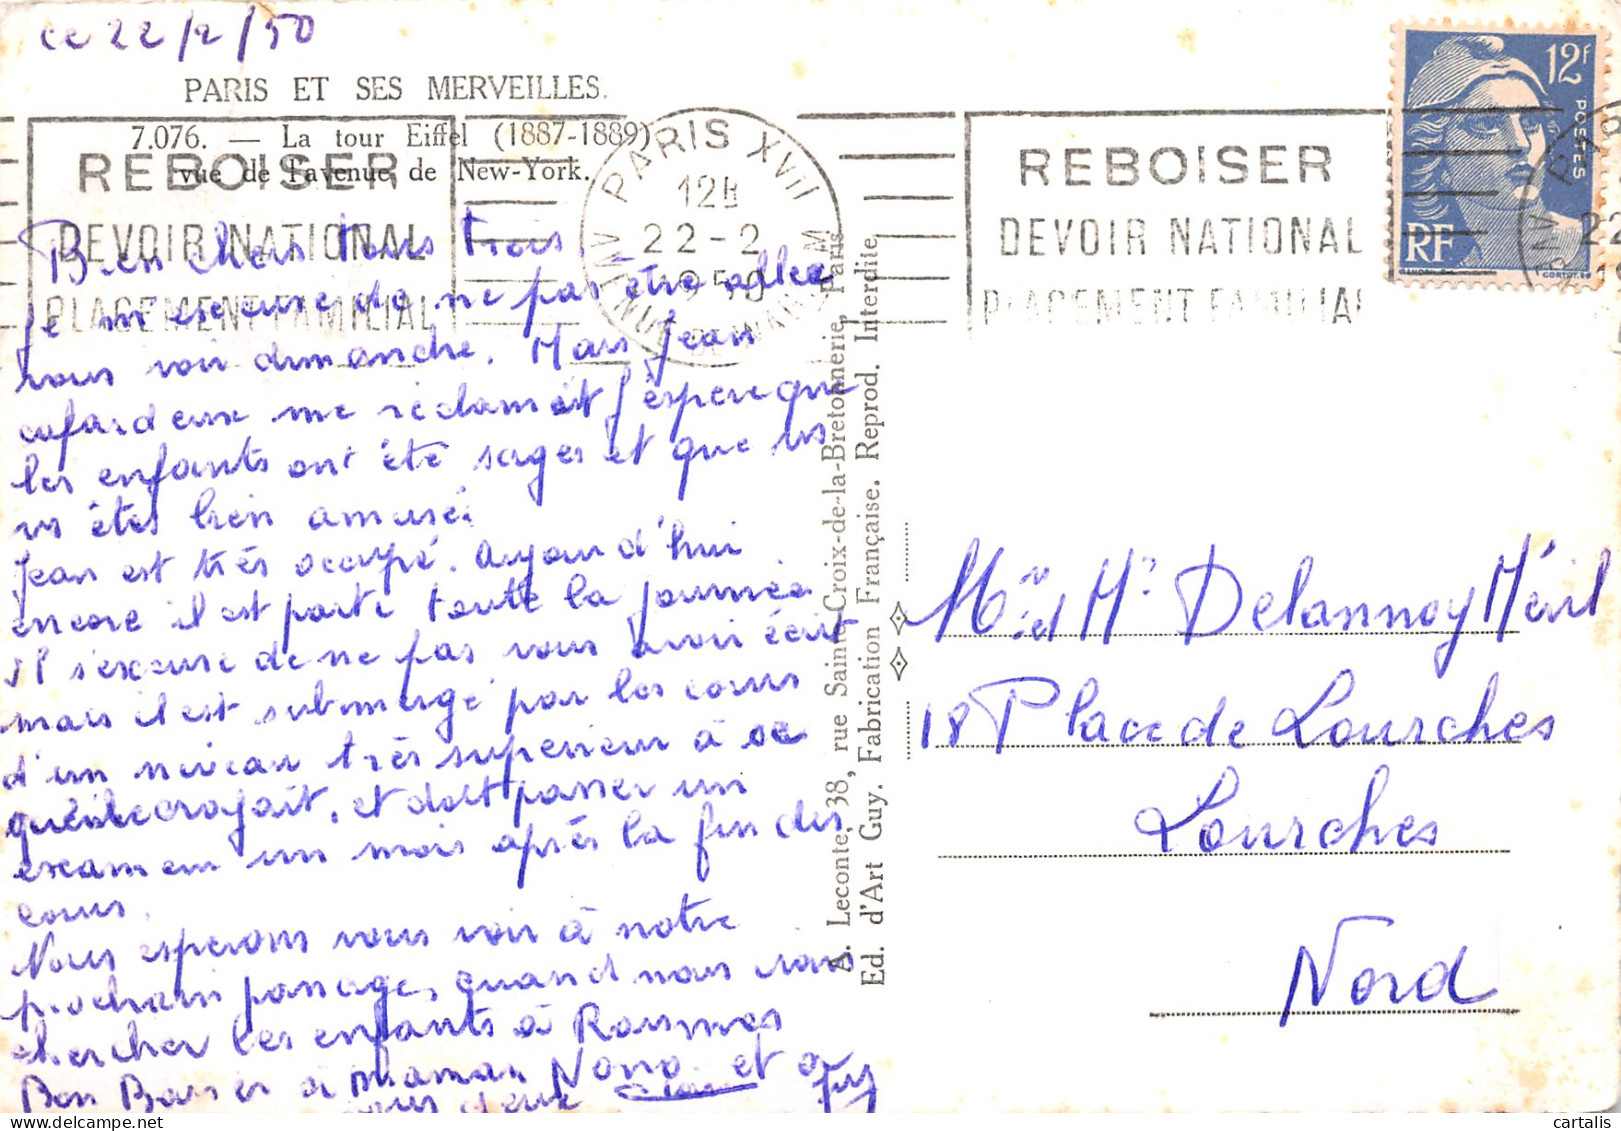 ce 22/2/50
PARIS ET SES MERVEILLES.
7.076. — La tour Eiffel (1887-1889)
vue de l'avenue de New-York.
REBOISER
DEVOIR NATIONAL
PLACEMENT FAMILIAL
PARIS XVII
12H
22-2
1950
REBOISER
DEVOIR NATIONAL
PLACEMENT FAMILIAL
12F
POSTES
RF
Bien chers tous trois
Je m'excuse de ne pas être allée
vous voir dimanche. Mais Jean
cafardeux me réclamait J'espère que
les enfants ont été sages et que vs
vs êtes bien amusé.
Jean est très occupé. Aujourd'hui
encore il est parti toute la journée
Il s'excuse de ne pas vous avoir écrit
mais il est submergé par les cours
d'un niveau très supérieur à ce
qu'il croyait, et doit passer un
examen un mois après la fin des
cours.
Nous esperons vous voir à notre
prochain passage, quand nous irons
chercher les enfants à Raismes
Bon Baiser à maman Nono et
deux
A. Leconte, 38, rue Sainte-Croix-de-la-Bretonnerie, Paris
Ed. d'Art Guy. Fabrication Française. Reprod. Interdite
Mr et Me Delannoy Méril
18 Place de Lourches
Lourches
Nord
cartalis.com